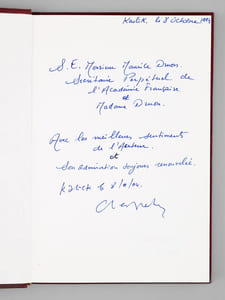 le 8 Octobre
S. E. Monsieur Maurice Druon.
Secrétaire Perpétuel de
l'Académie Française
et
Madame Druon.
Avec les meilleurs sentiments
de l'Auteur.
et
Son admiration toujours renouvelée.
le 8/